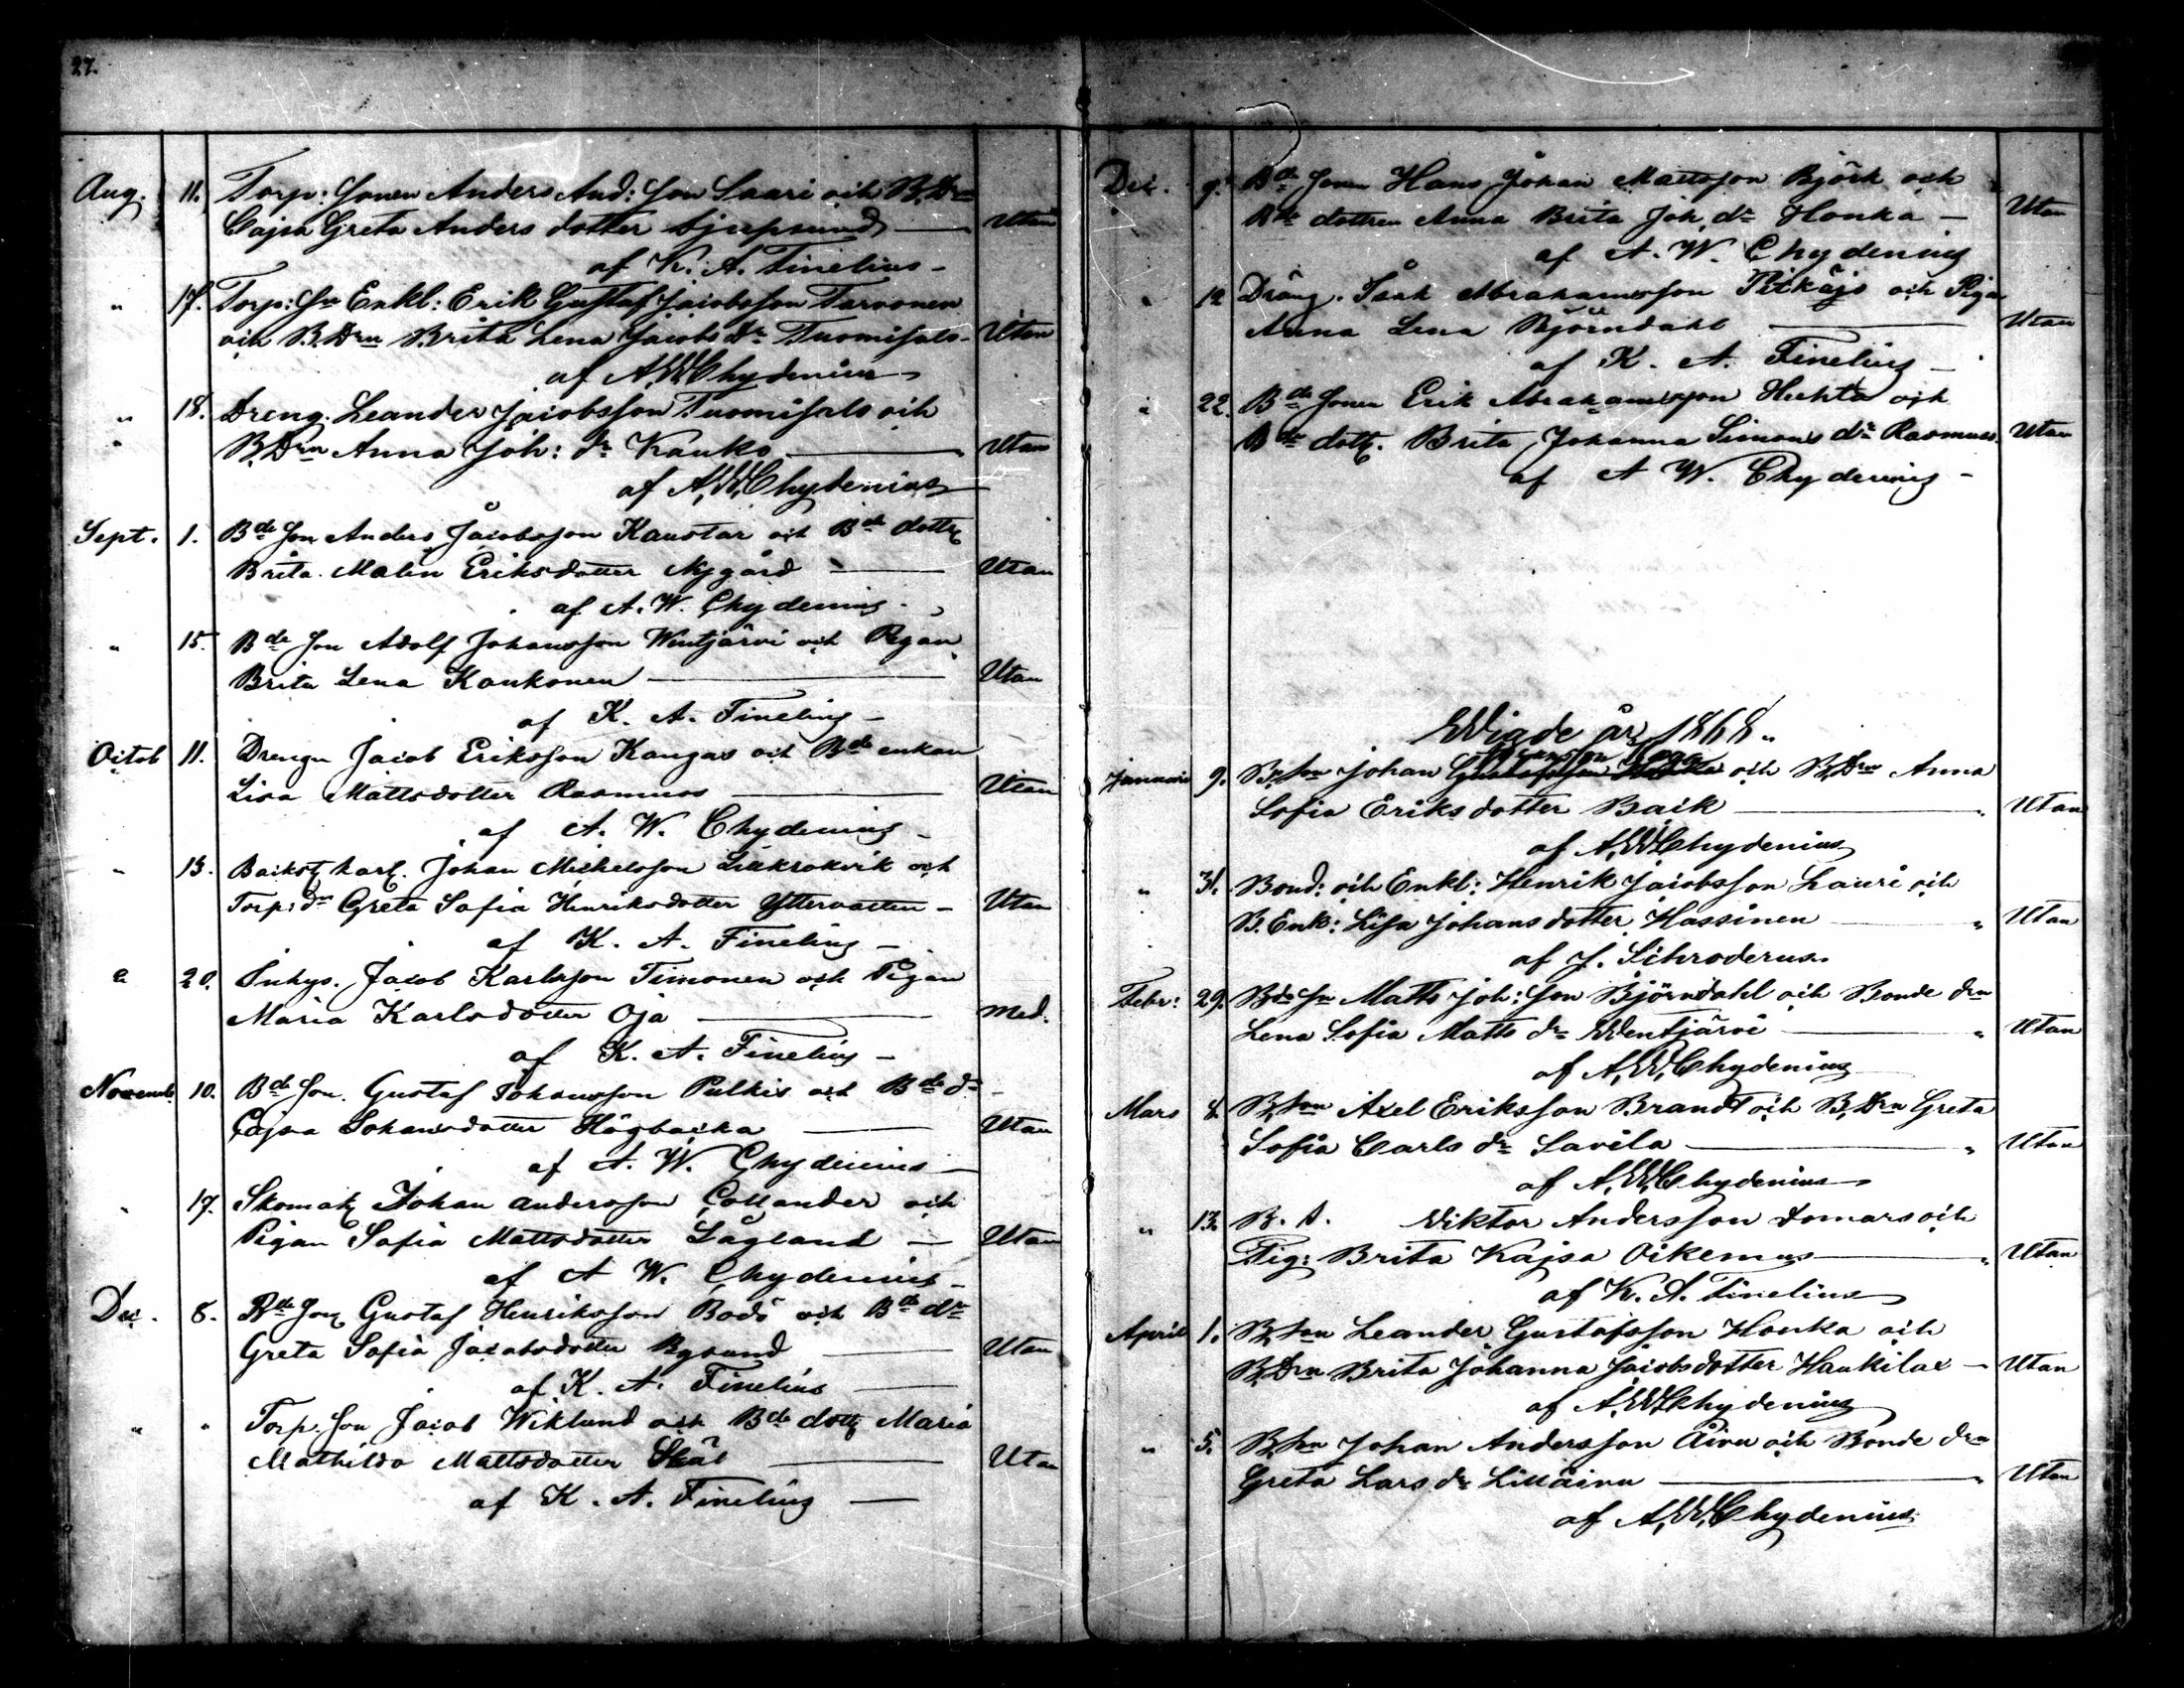 27.
Aug. 11. Torp: Sonen Anders And: Son Saari och B, Drn
Cajsa Greta Anders dotter Sjuksund — Utan
af K. A. Finelius –
" 17. Torp: Sn Enkl: Erik Gustaf Jacobsson Tarvonen
och B, Drn Brita Lena Jacobs Dr Tuomisalo – Utan
af A, W, Chydenius
" 18. Dreng. Leander Jacobsson Tuomisalo och
" B, Drn Anna Joh: dr Kauko — Utan
af A, W, Chydenius
Sept. 1. Bde Son Anders Jacobsson Kaustar och Bde dottr
Brita Malin Eriksdotter Nygård — Utan
af A. W. Chydenius
" 15. Bde Son Adolf Johansson Wintjärvi och Pigan
Brita Lena Kaukonen — Utan
af K. A. Finelius –
Octob 11. Drengn Jacob Eriksson Kangas och Bde enkan
Lisa Mattsdotter Rasmus — Utan
af A. W. Chydenius –
" 13. Backst. karl. Johan Michelsson Lillkrokvik och
Torp: dr Greta Sofia Henriksdotter Yttervatten – Utan
af K. A. Finelius –
" 20. Inhys. Jacob Karlsson Timonen och Pigan
Maria Karlsdotter Oja — Med.
af K. A. Finelius –
Novemb. 10. Bde Son. Gustaf Johansson Pulkis och Bde dr –
Cajsa Johansdotter Högbacka — Utan
af A. W. Chydenius –
" 17. Skomak. Johan Andersson Collander och
Pigan Sofia Mattsdotter Lågland — Utan
af A W. Chydenius –
Dec. 8. Bde Son Gustaf Henriksson Bodö och Bde dr
Greta Sofia Jacobsdotter Bysund — Utan
af K. A. Finelius —
" " Torp. Son Jacob Wiklund och Bde dottr Maria
Mathilda Mattsdotter Skåt — Utan
af K. A. Finelius —
Dec. 9. Bde Sonen Hans Johan Mattsson Björk och
Bde dottren Anna Brita Joh, dr Honka — Utan
af A. W. Chydenius
" 12 Dräng. Isak Abrahamsson Pitkäjs och Pigan
Anna Lena Björndahl — Utan
af K. A. Finelius –
" 22. Bde Sonen Erik Abrahamsson Huhta och
Bde dottr. Brita Johanna Simons dr Rasmus. Utan
af A W. Chydenius –
Wigde år 1868.
Januari 9. B, Son Johan Gustafsson och B, Drn Anna
Sofia Eriksdotter Baik — Utan
af A, W, Chydenius
" 31. Bond: och Enkl: Henrik Jacobsson Lauri och
B. Enk: Lisa Johansdotter Hassinen — " Utan
af J. Schroderus.
Febr: 29. Bde Sn Matts Joh: Son Björndahl och Bonde drn
Lena Sofia Matts dr Wentjärvi — " Utan
af A, W, Chydenius
Mars 8. B, Son Axel Eriksson Brandt och B, Drn Greta
Sofia Carls dr Savila — " Utan
af A, W, Chydenius
" 13. B. S. Wiktor Andersson Domars och
Pig: Brita Kajsa Oikemus — " Utan
af K. A. Finelius
April 1. B, Son Leander Gustafsson Honka och
B, Drn Brita Johanna Jacobsdotter Haukilax — Utan
af A, W, Chydenius
" 5. B, Son Johan Andersson Åivu och Bonde drn
Greta Lars dr Lilläinu — " Utan
af A, W, Chydenius